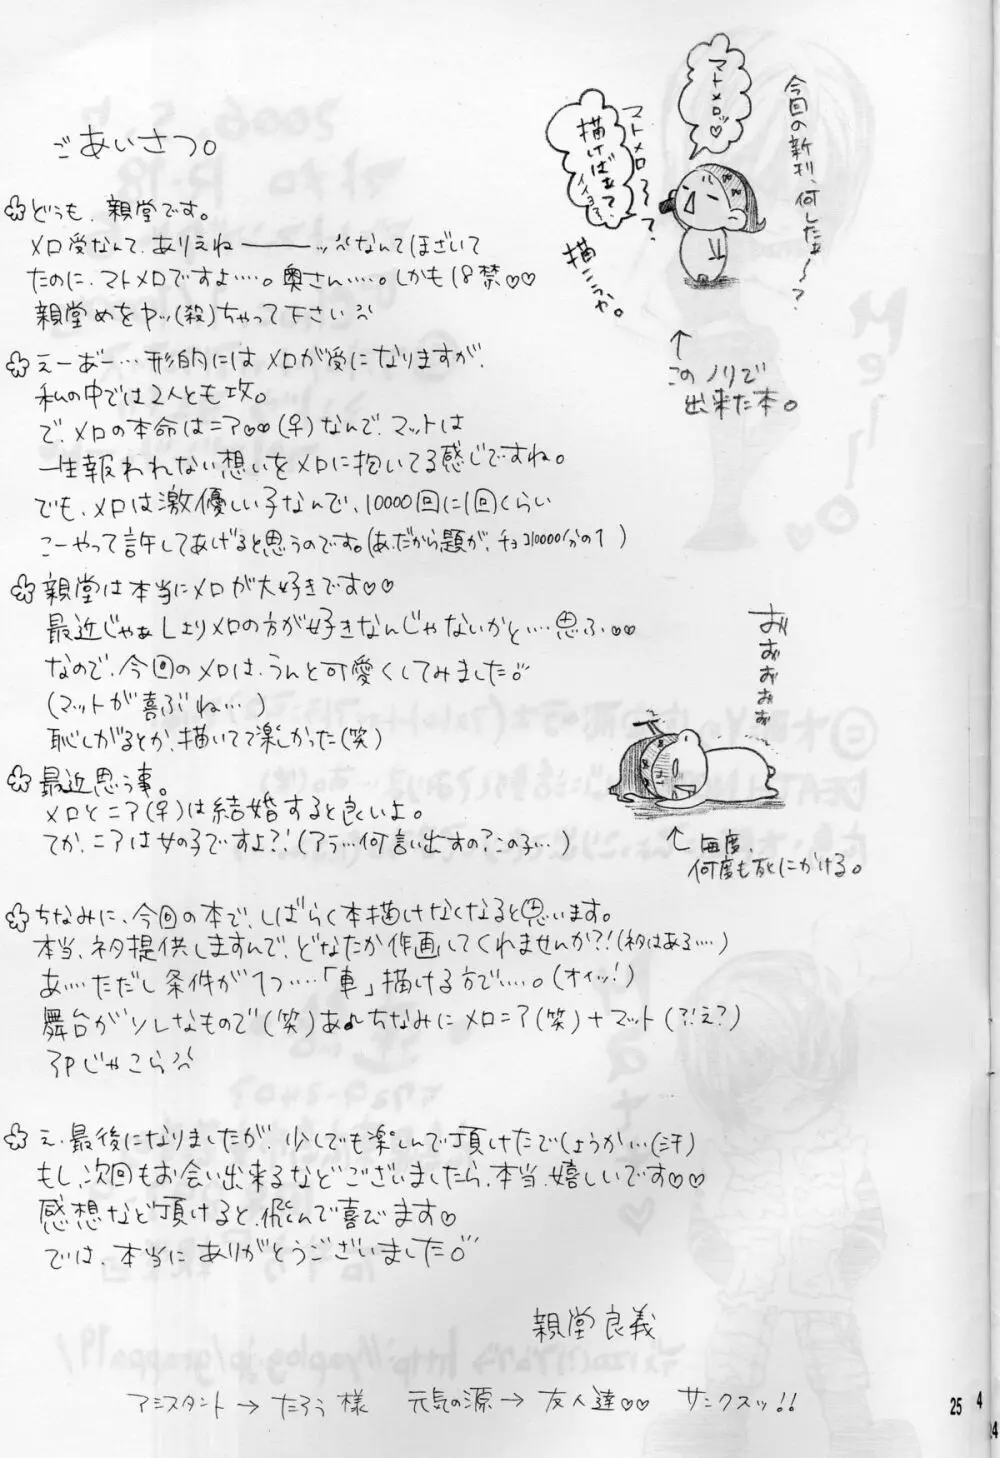 ごあいさつ。
どうも、親堂です。
メロ受なんて、ありえねーーーッなんてほざいて
たのに、マトメロですよ……。奥さん……。しかも18禁♡♡
親堂めをヤッ(殺)ちゃって下さい
えーあー…形的にはメロが受になりますが、
私の中では2人とも攻。
で、メロの本命はニア♡♡(♀)なんで、マットは
一生報われない想いをメロに抱いてる感じですね。
でも、メロは激優しい子なんで、10000回に1回くらい
こーやって許してあげると思うのです。(あ、だから題が、チョコ10000分の1)
親堂は本当にメロが大好きです♡♡
最近じゃぁLよりメロの方が好きなんじゃないかと…思ふ♡♡
なので、今回のメロは、うんと可愛くしてみました
(マットが喜ぶね…)
恥しがるとか、描いてて楽しかった(笑)
最近思う事。
メロとニア(♀)は結婚すると良いよ。
てか、ニアは女の子ですよ?!(アラ…何言い出すの?この子…)
ちなみに、今回の本で、しばらく本描けなくなると思います。
本当、ネタ提供しますんで、どなたか作画してくれませんか?!(ネタはある…)
あ…ただし条件が1つ……「車」描ける方で……。(オイッ!)
舞台がソレなもので(笑)あ♪ちなみにメロニア(笑)+マット(?!え?)
3Pじゃこら
え、最後になりましたが、少しでも楽しんで頂けたでしょうか…(汗)
もし、次回もお会い出来るなどございましたら、本当、嬉しいです♡♡
感想など頂けると、飛んで喜びます♡
では、本当にありがとうございました
親堂良義
アシスタント→たろう様 元気の源→友人達♡♡ サンクスッ!!
今回の新刊、何したぁ〜?
マトメロッ♡
マトメロ〜?
描けばぁて、
イイヨ
描こうか。
↑
このノリで
出来た本。
おおおおお
↑毎度、
何度も死にかける。
25
4